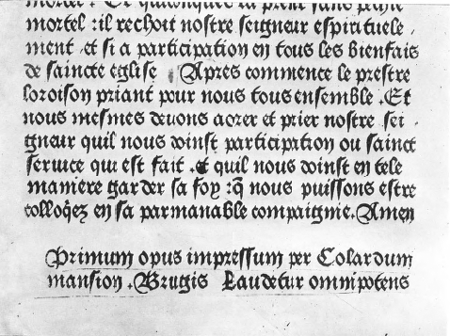 mortel : il rechoit nostre seigneur espirituele-
ment et si a participation en tous les bienfais
de saincte eglise Apres commence le prestre
loroison priant pour nous tous ensemble . Et
nous mesmes deuons aorer et prier nostre sei-
gneur quil nous doinst participation ou sainct
seruice qui est fait . et quil nous doinst en tele
maniere garder sa foy :q̄ nous puissons estre
colloq̄ez en sa parmanable compaignie. Amen
Primum opus impressum per Colardum
mansion . Brugis Laudetur omnipotens